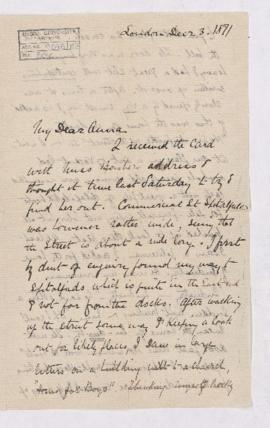 London Decr 3. 1891
My Dear Anna
I received the Card
with Miss address &
thought it time last Saturday to try &
find her out. Commercial St Spitalfields
was however rather wide, seeing that
the Street is about a mile long. I first
by dint of enquiry found my way to
Spitalfields which is quite in the East end
& not far from the docks. After walking
up the street some way & keeping a look
out for likely places, I saw in large
letters on a building next to a church,
"Home for Boys"